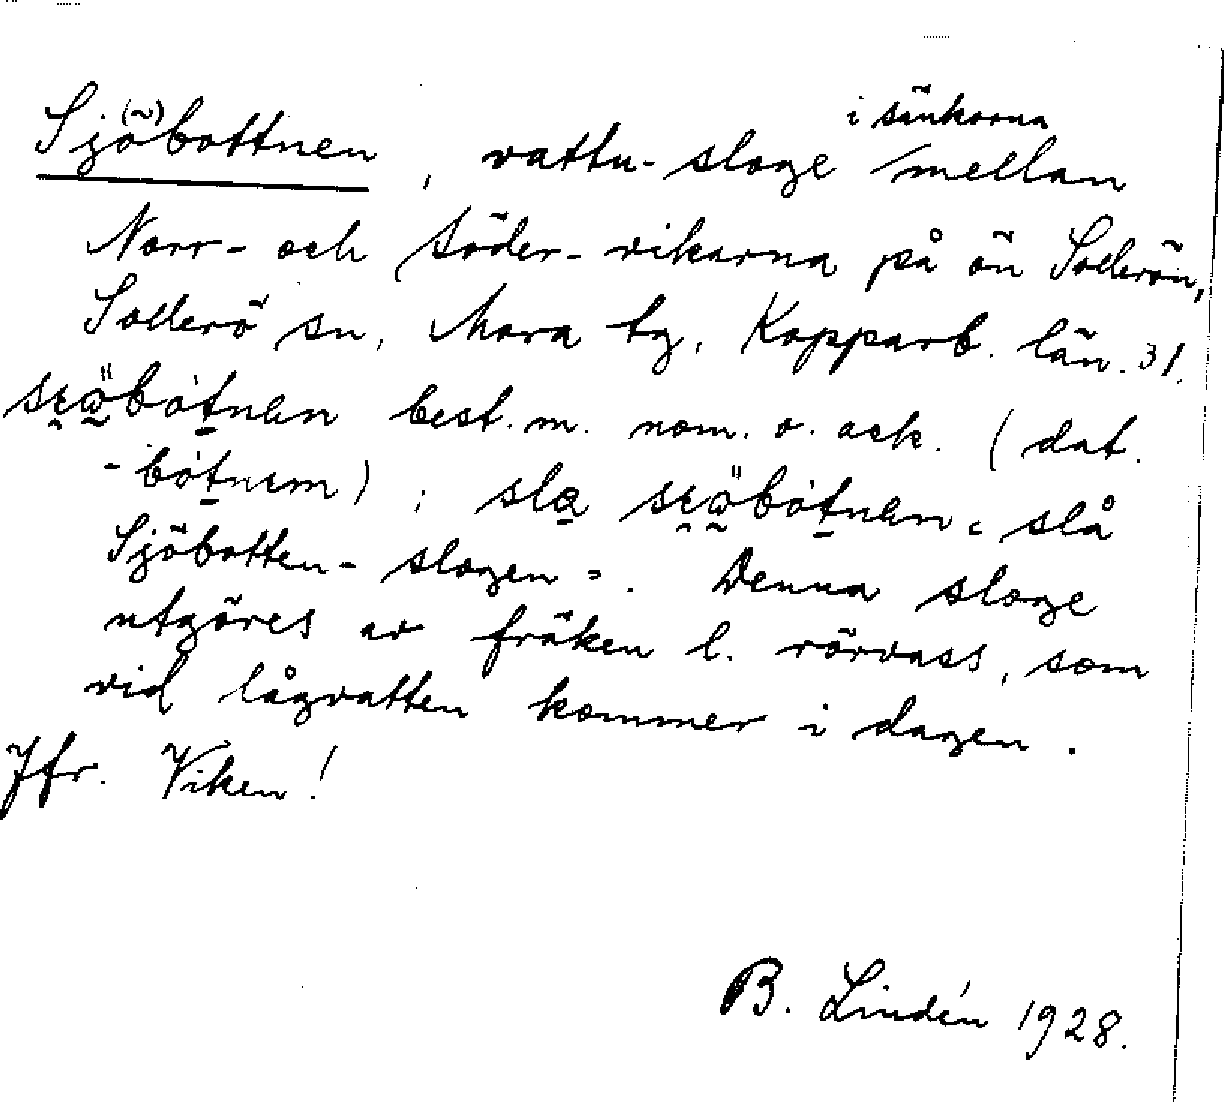 Sjö(~)bottnen, vattu-sloge i sänkorna mellan
Norr- och Söder-vikarna på ön Sollerön,
Sollerö sn, Mora tg, Kopparb. län. 31.
best. m. nom. o. ack. (dat.
-bòtnem); slå
Sjöbotten-slogen =. Denna sloge
utgöres av fräken l. rörvass, som
vid lågvatten kommer i dagen.
Jfr. Viken!
B. Lindén 1928.